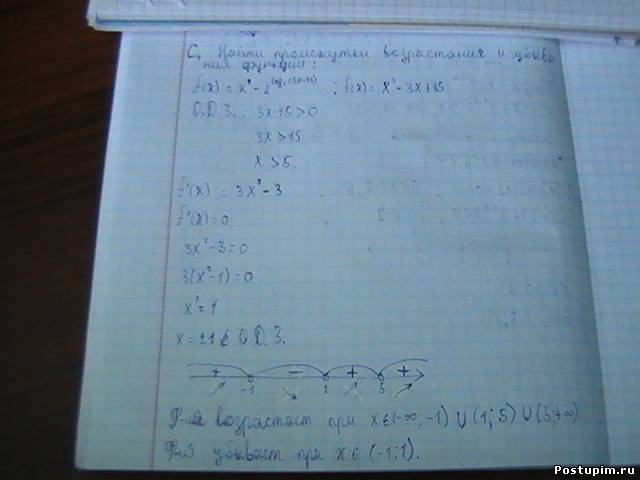 C₁ Найти промежутки возрастания и убыва-
ния функции:
f(x) = x³ - 2^(log₂(3x-15)) ; f(x) = x³ - 3x + 15
О.D.З.: 3x-15>0
3x>15
x>5.
f'(x) = 3x² - 3
f'(x)=0
3x² - 3=0
3(x²-1)=0
x²=1
x=±1 ∉ О.D.З.
+ - + +
-1 1 5
Ф-ия возрастает при x∈(-∞;-1)∪(1;5)∪(5;+∞)
Ф-ия убывает при x∈(-1;1).
Postupim.ru